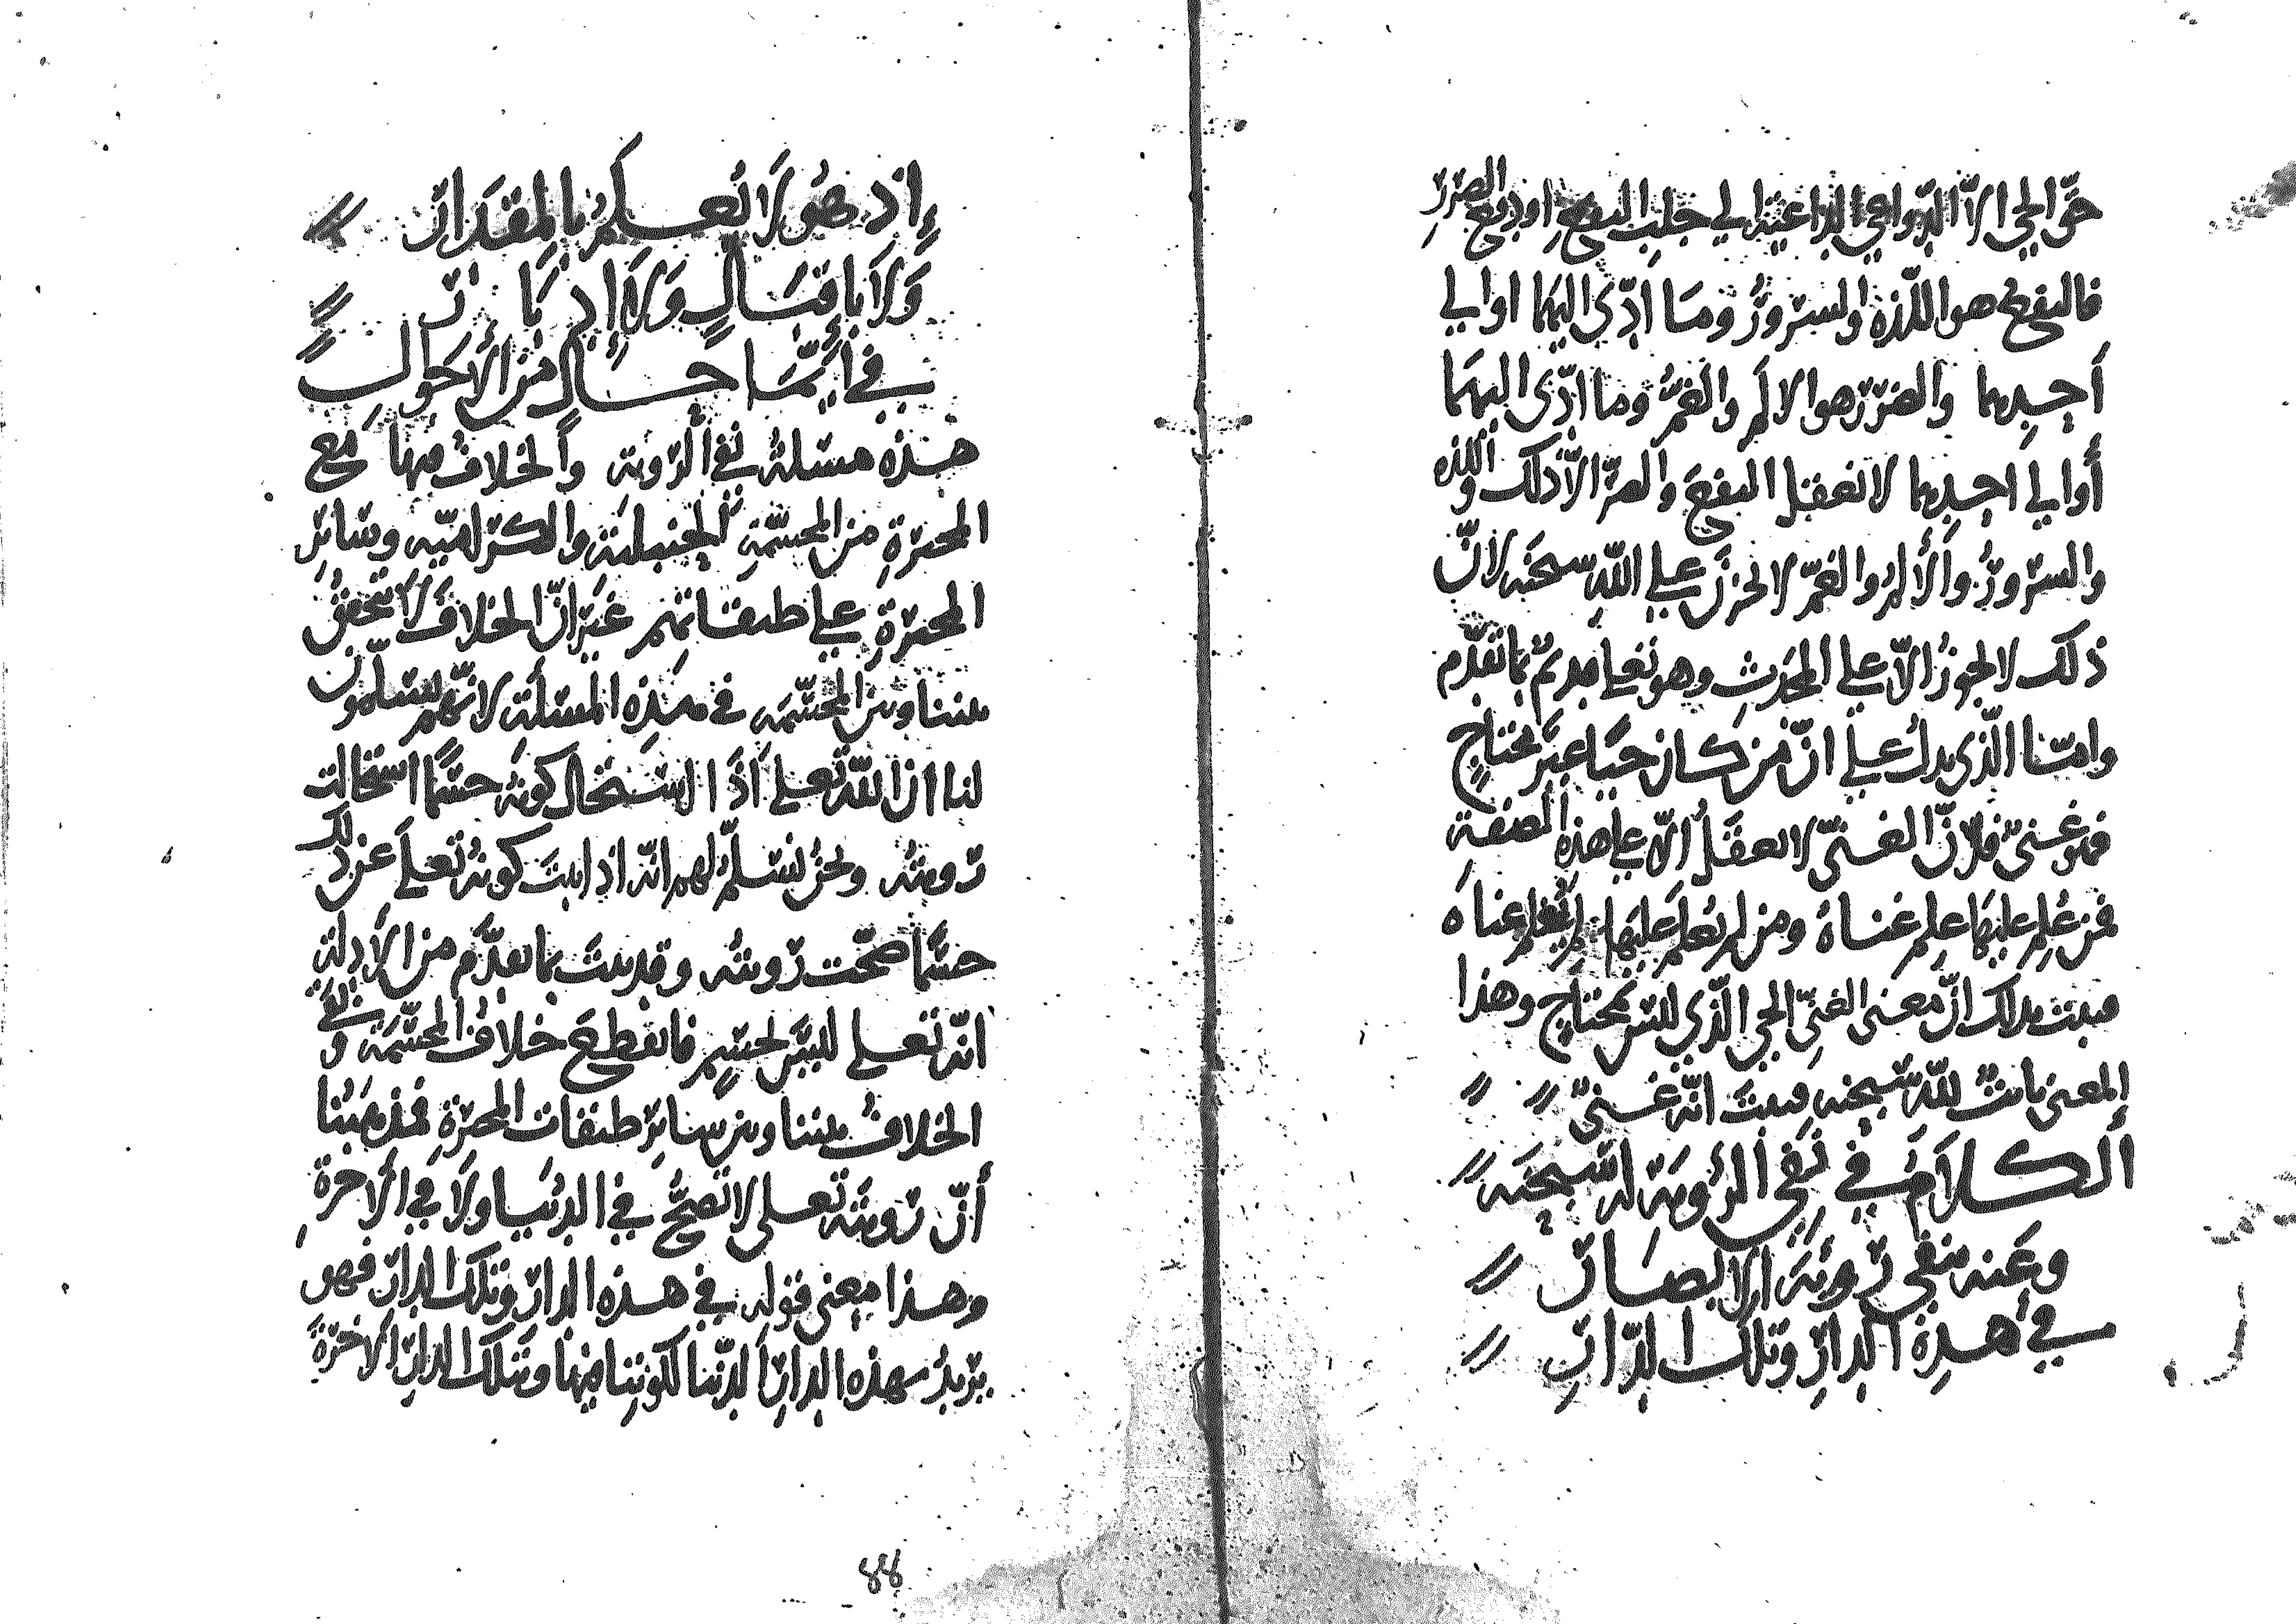 حق الحي الا الدواعي الداعية الي جلب النفع او دفع الضرر
فالنفع هو اللذة والسرور وما ادّى اليهما او الي
أحدهما والضرر هو الالم والغمّ وما ادّى اليهما
أو الي احدهما لا نعقل النفع والضرّ الّا ذلك واللذه
والسرور والألم والغمّ لا تجوز علي اللّه سبحنه لانّ
ذلك لا يجوز الّا علي المحدث وهو تعلي قديم بما تقدّم
وامّا الّذي يدل علي انّ من كان حيّا غير محتاج
فهو غنيّ فلانّ الغنيّ لا يعقل الّا علي هذه الصفة
فمن علم عليها علم غناه ومن لم يعلم عليها لم يعلم غناه
فثبت بذلك انّ معنى الغنيّ الحي الّذي ليس بمحتاج وهذا
المعنى ثابت للّه سبحنه فثبت انّه غنيّ
الكلام في نفي الرؤية له سبحنه
وعنه ننفي رؤية الابصار
في هذه الدار وتلك الدّار
إذ هو لا يعلم بالمقدار
ولا باقبال ولا إدبار
في أيّما حال من الأحوال
هذه مسئلة نفي الرؤية والخلاف فيها مع
المجبرة من المجسّمة الحنبلية والكراميّه وسائر
المجبرة علي طبقاتهم غير انّ الخلاف لا يتحقق
بيننا وبين المجسّمه في هذه المسئلة لانّهم يسلّمون
لنا ان اللّه تعلي اذا استحال كونه جسما استحالت
رويته ونحن نسلّم لهم انّه اذا ثبت كونه تعلي عن ذلك
جسما صحّت رويته وقد ثبت بما تقدّم من الأدلة
انّه تعلي ليس بجسم فانقطع خلاف المجسّمة وبقي
الخلاف بيننا وبين سائر طبقات المجبرة فمذهبنا
أنّ رويته تعلى لا تصحّ في الدنيا ولا في الأخرة
وهذا معنى قوله في هذه الدار وتلك الدار فهو
يريد بهذه الدار الدّنيا لكوننا فيها وبتلك الدار الاخرة
88